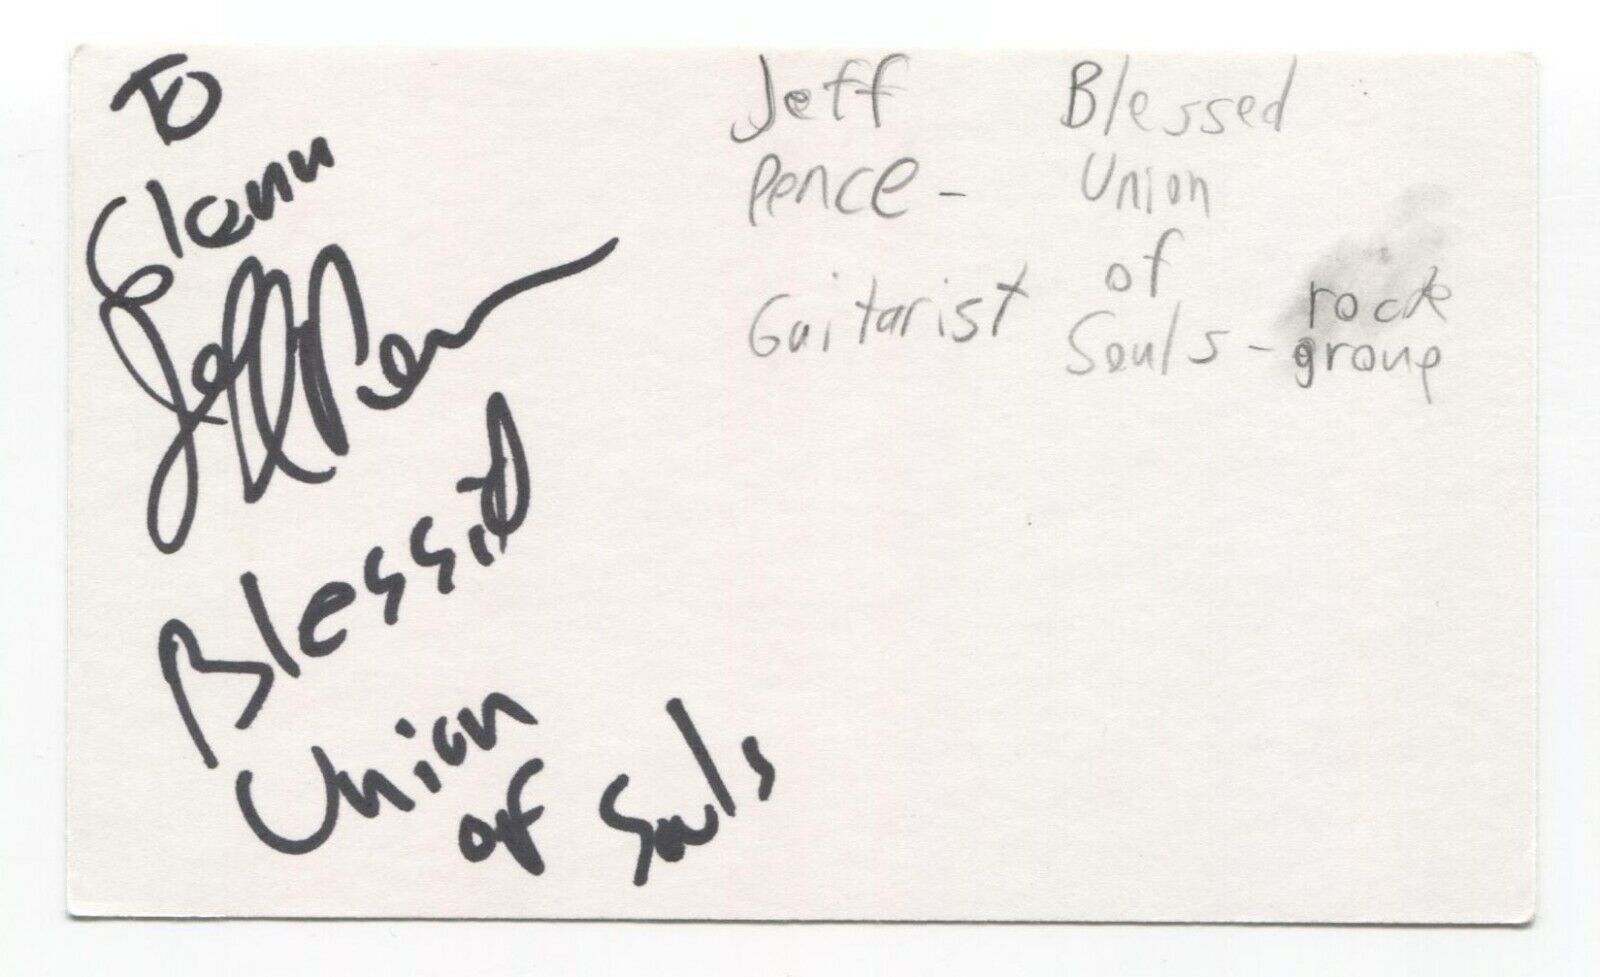 To
Glenn
Jeff Pence
Blessid
Union
of Souls
Jeff
Pence -
Guitarist
Blessed
Union
of
Souls - rock
group